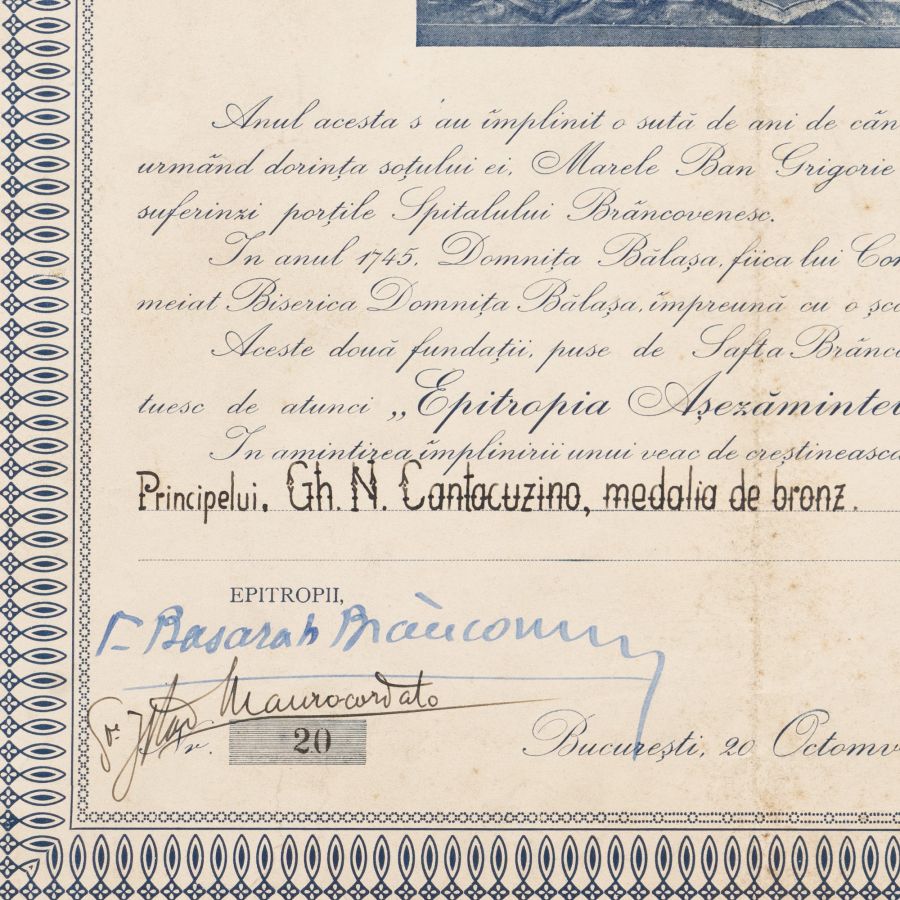 Anul acesta s'au împlinit o sută de ani de cân
urmând dorința soțului ei, Marele Ban Grigorie
suferinzi porțile Spitalului Brâncovenesc.
In anul 1745, Domnița Bălașa, fiica lui Con
meiat Biserica Domnița Bălașa, împreună cu o șco
Aceste două fundații, puse de Safta Brânco
tuesc de atunci „Epitropia Așezămintel
In amintirea împlinirii unui veac de creștinească
Principelui, Gh. N. Cantacuzino, medalia de bronz.
EPITROPII,
Basarab Brâncoveanu
Maurocordato
Nr. 20
București, 20 Octomv